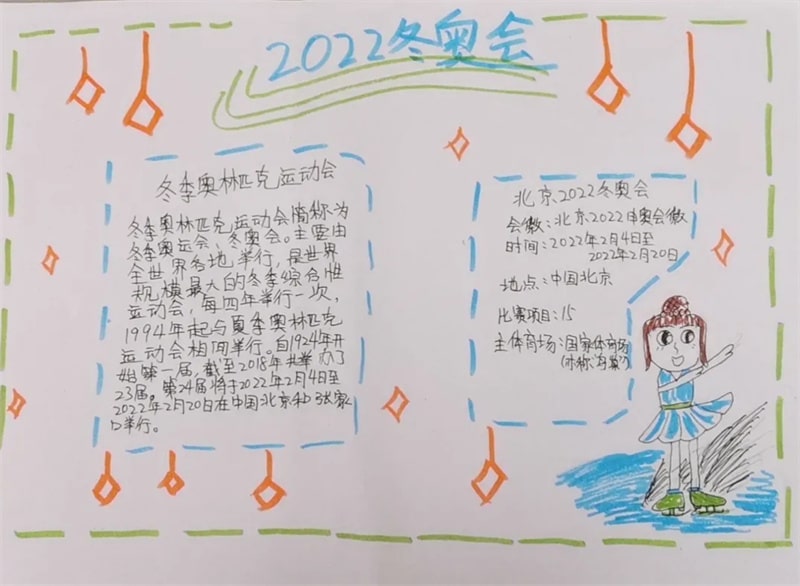 2022冬奥会
冬季奥林匹克运动会
冬季奥林匹克运动会简称为
冬季奥运会、冬奥会。主要由
全世界各地举行，是世界
规模最大的冬季综合性
运动会，每四年举行一次，
1994年起与夏季奥林匹克
运动会相间举行。自1924年开
始第一届，截至2018年共举办了
23届。第24届将于2022年2月4日至
2022年2月20日在中国北京和张家
口举行。
北京2022冬奥会
会徽：北京2022申奥会徽
时间：2022年2月4日至
2022年2月20日
地点：中国北京
比赛项目：15
主体育场：国家体育场
(亦称"鸟巢")